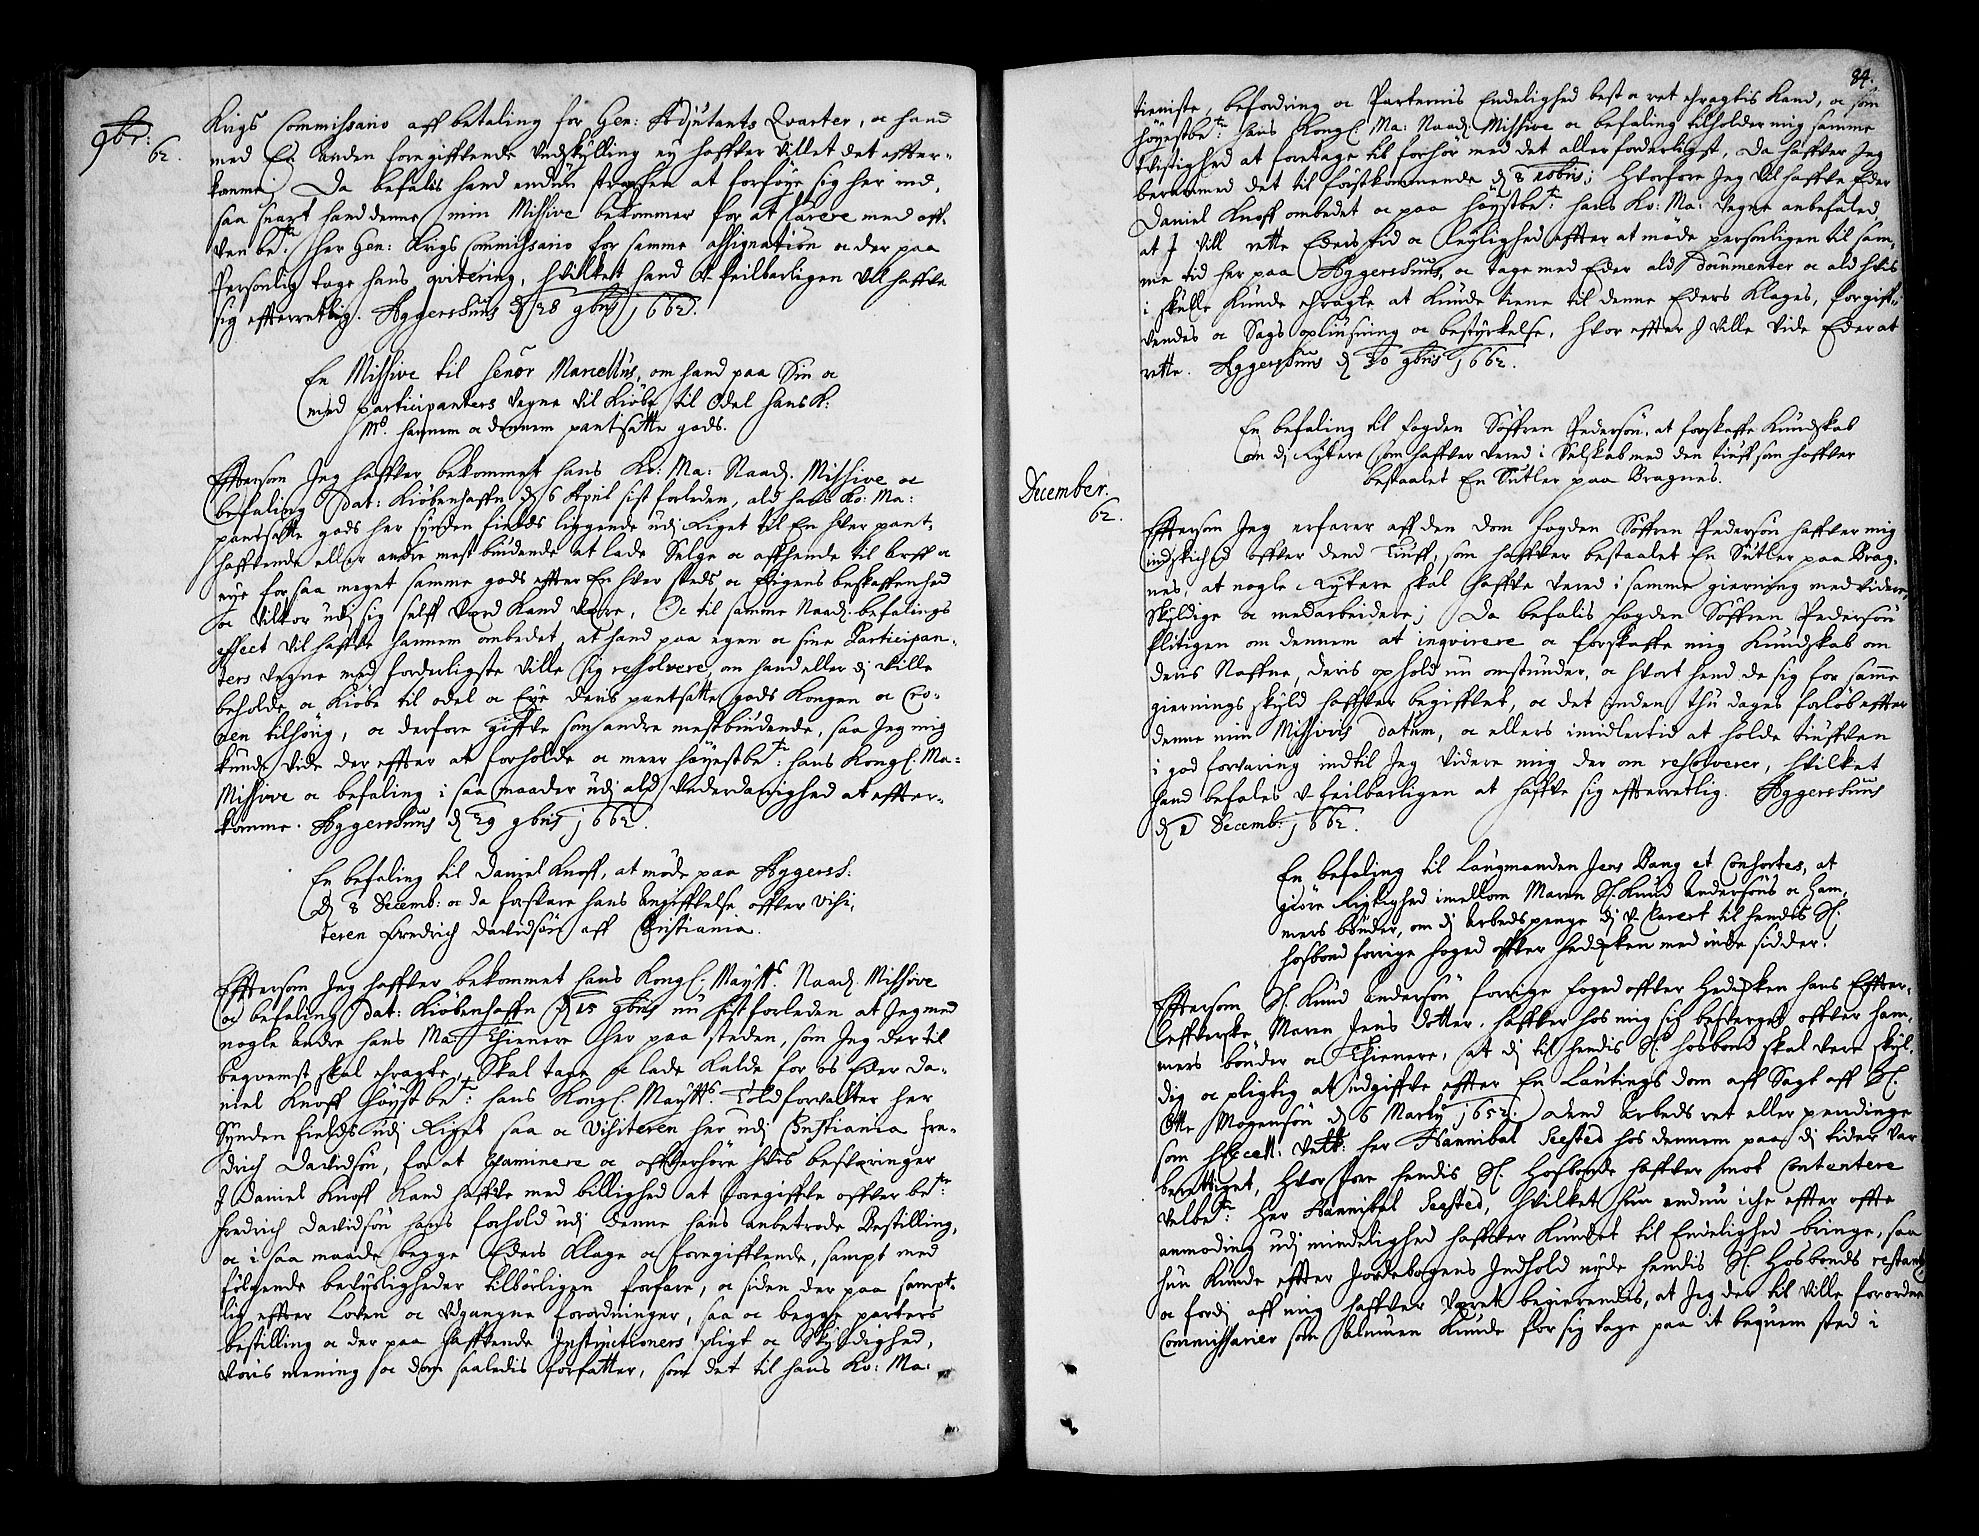 9br:
62.
Krigs Commissario aff betaling for Gen: Adjutants Qvarter, oc hand
med En anden foregiffvende undskylling ey haffver villet det effter-
komme; Da befalis hand endnu straxsen at forføye sig her ind,
saa snart hand denne min Missive bekommer for at Clarere med off-
ven be:te Her Gen: Krigs Commissario for samme assignation oc der paa
Personlig tage hans qvitering, hvilket hand u-feilbarligen vil haffve
sig effterretlig. Aggershuus d 28 9bris 1662.
En Missive til Señor Marcellus, om hand paa Sin oc
med participanters vegne vil Kiøbe til Odel hans K:
Mt. hannem oc dennem pantsatte gods.
Efftersom Jeg haffver bekommet hans Ko: Ma: Naad. Missive oc
befaling dat: Kiøbenhaffn d 6 April sist forleden, ald hans Ko: Ma:
pantsatte gods her synden fields liggende udi Riget til En hver pant-
haffvende eller andre mest biudende at lade Selge oc affhende til arff oc
eye for saa meget samme gods effter En hver steds oc Eigens beskaffenhed
oc vilkor udi sig self værd kand være, Oc til samme Naad. befalings
effect vil haffve hannem ombedet, at hand paa egen oc sine Participan-
ters vegne med forderligste ville sig resolvere, om hand eller di ville
beholde oc Kiøbe til odel oc Eye deris pantsatte gods Kongen oc Cro-
nen tilhørig, oc derfore giffve som andre mestbiudende, saa Jeg mig
kunde vide der effter at forholde oc meer høyestbe:te hans Kongl. Ma:
Missive oc befaling i saa maader udi ald underdanighed at effter-
komme. Aggershuus d 29 9bris 1662.
En befaling til Daniel Knoff, at møde paa Aggersh:
d 8 Decemb: oc da forklare hans angiffvelse offver visi-
teren Fredrich Davidsøn aff Christiania.
Efftersom Jeg haffver bekommet hans Kongl: Mayttz. Naad. Missive
oc befaling dat: Kiøbenhaffn d 15 9bris nu sist forleden at Jeg med
nogle andre hans Ma: Thienere her paa steden, som Jeg der til
beqvemst skal eragte, Skal tage oc lade kalde for os Eder Da-
niel Knoff høystbe:te hans Kongl Mayttz Toldforvalter her
Synden fields udi Riget saa oc Visiteren her udi Christiania Fre-
drich Davidsøn, for at Examinere oc offverhøre hvis besværinger
I Daniel Knoff kand haffve med billighed at foregiffve offver be:te
Fredrich Davidsøn hans forhold udi denne hans anbetrode Bestilling,
oc i saa maade begge Eders Klage oc foregiffvende, sampt med
følgende bevysligheder tilbørligen forfare, oc siden der paa sampt-
lig effter Loven oc udgangne forordninger, saa oc begge parters
bestilling oc der paa haffvende Instructioners pligt oc Skyldighed,
voris mening oc dom saaledis forfatter, som det til hans Ko: Ma:
84.
tieniste, befodring oc Parternis Endelighed best oc ret eragtis kand, oc som
høyestbe:te hans Kongl: Ma: Naad. Missive oc befaling tilholder mig samme
tvistighed at foretage til forhør med det aller forderligst, Da haffver Jeg
berammed det til førstkommende d 8 10bris; Hvorfore Jeg vil haffve Eder
Daniel Knoff ombedet oc paa høystbe:te hans Ko: Ma: vegne anbefaled,
at I vill rette Eders tid oc leylighed effter at møde personligen til sam-
me tid her paa Aggershuus, oc tage med Eder ald documenter oc ald hvis
i skulle kunde eragte at kunde tiene til denne Eders Klages, forgiff-
vendes oc Sags opliusning oc bestyrkelse, hvor effter I ville vide Eder at
rette. Aggershuus d 30 9bris 1662.
En befaling til fogden Søffren Pedersøn, at forskaffe Kundskab
om di Rytere som haffver vered i Selskab med den tiuff som haffver
bestaalet En Sutler paa Bragnes.
December.
62.
Efftersom Jeg erfarer aff den dom fogden Søffren Pedersøn haffver mig
indskiched offver dend Tiuff, som haffver bestaalet En Sutler paa Brag-
nes, at nogle Rytere skal haffve vered i samme gierning med videre
Skyldige oc medarbeidere; Da befalis fogden Søffren Pedersøn
flitigen om dennem at inqvirere oc forskaffe mig Kundskab om
deris Naffne, deris ophold nu omstunder, oc hvort hend de sig for samme
giernings skyld haffver begiffvet, oc det inden thu dages forløb effter
denne min Missivis datum, oc ellers imidlertid at holde tiuffven
i god forvaring indtil Jeg videre mig der om resolverer, hvilket
hand befales u-feilbarligen at haffve sig effterretlig. Aggershuus
d 1 Decemb: 1662.
En befaling til Laugmanden Jens Bang et Consortes, at
giøre Rigtighed imellom Maren Sl. Knud Andersøns oc Ham-
mers bønder, om di arbeds penge di u-klarert til hendes Sl.
hosbond forrige foged offver Hedemken med inde sidder.
Efftersom Sl. Knud Andersøn, forrige foged offver Hedemken hans Effter-
leffverske Maren Jens dotter, haffver hos mig sig besverget offver Ham-
mers bønder oc Thienere, at di til hendis Sl. hosbond skal vere skyl-
dig oc pligtig at udgiffve effter En Lautings dom aff Sagt aff Sl.
Otte Mogensøn d 6 Marty 1652. dend arbeds ret eller pendinge
som hExcell. velb: her Hannibal Seested hos dennem paa di tider var
berettiget, hvor fore hendis Sl. Hosbonde haffver mot Contentere
velbe:te Her Hannibal Seested, hvilket hun endnu iche effter ofte
anmoding udi mindelighed haffver kundet til Endelighed bringe, saa
hun kunde effter Jordebogens Indhold nyde hendis Sl. Hosbonds restantz
oc fordi aff mig haffver veret begierendis, at Jeg der til ville forordne
Commissarier som Almuen kunde for sig tage paa it beqvem sted i